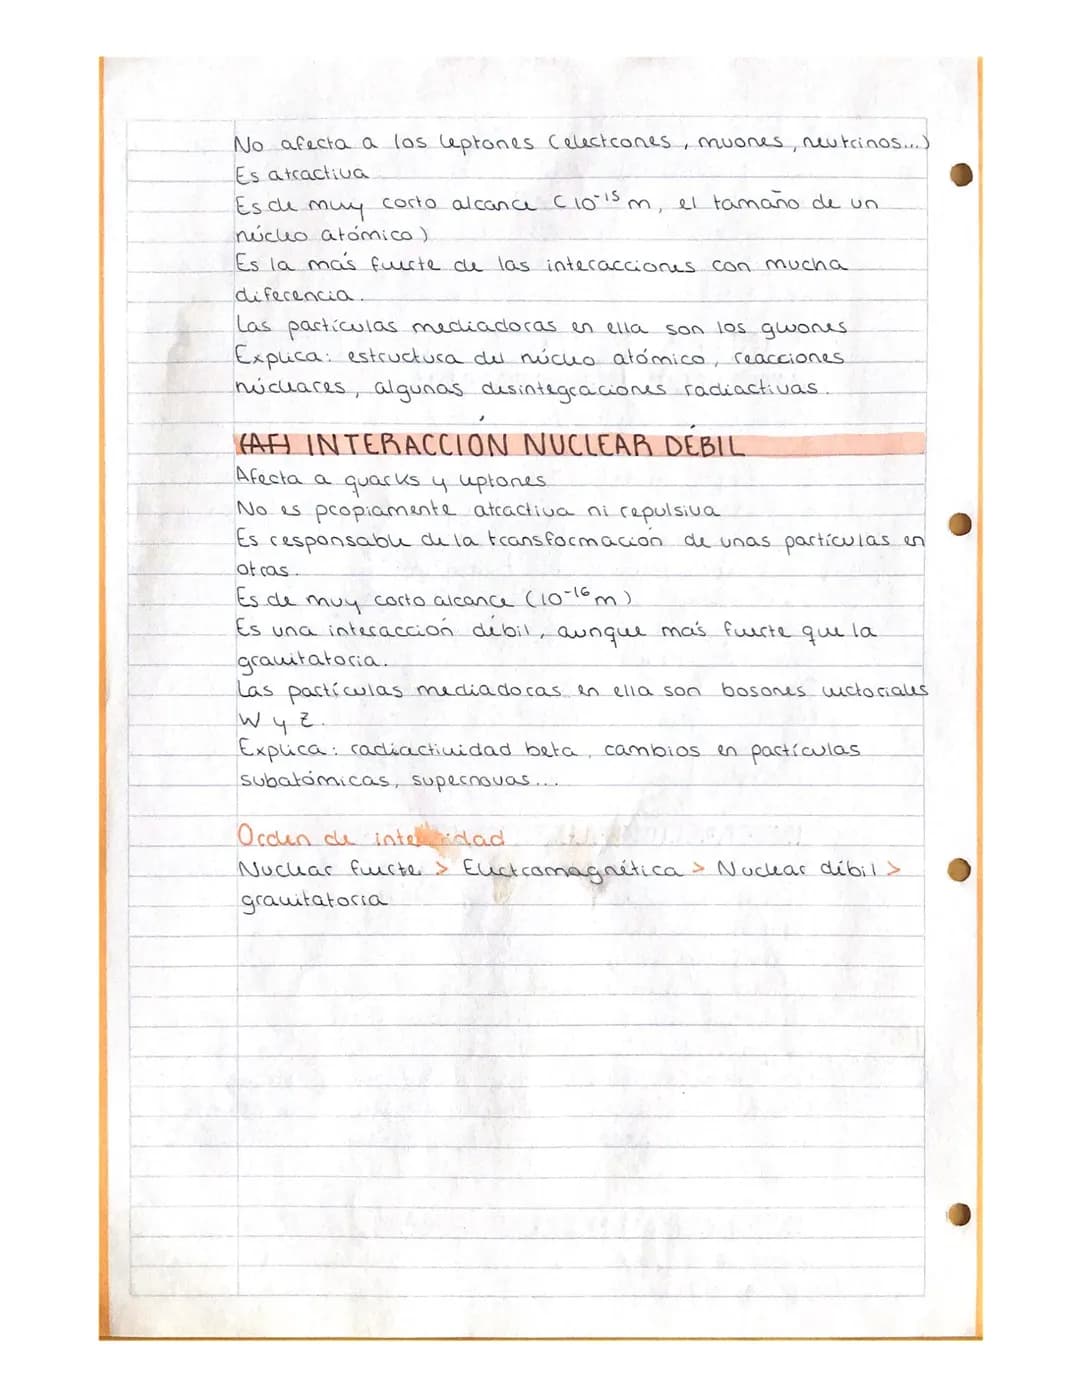 No afecta a los leptones (electrones, muones, neutrinos...)
Es atractiva
Es de muy corto alcance (10⁻¹⁵ m, el tamaño de un
núcleo atómico)
Es la más fuerte de las interacciones con mucha
diferencia.
Las partículas mediadoras en ella son los gluones
Explica: estructura del núcleo atómico, reacciones
núcleares, algunas desintegraciones radiactivas.
INTERACCIÓN NUCLEAR DÉBIL
Afecta a quarks y leptones
No es propiamente atractiva ni repulsiva
Es responsable de la transformación de unas partículas en
otras.
Es de muy corto alcance (10⁻¹⁶ m)
Es una interacción débil, aunque más fuerte que la
gravitatoria.
Las partículas mediadoras en ella son bosones vectoriales
W y Z.
Explica: radiactividad beta, cambios en partículas
subatómicas, supernovas...
Orden de
Nuclear fuerte > Electromagnética > Nuclear débil >
gravitatoria